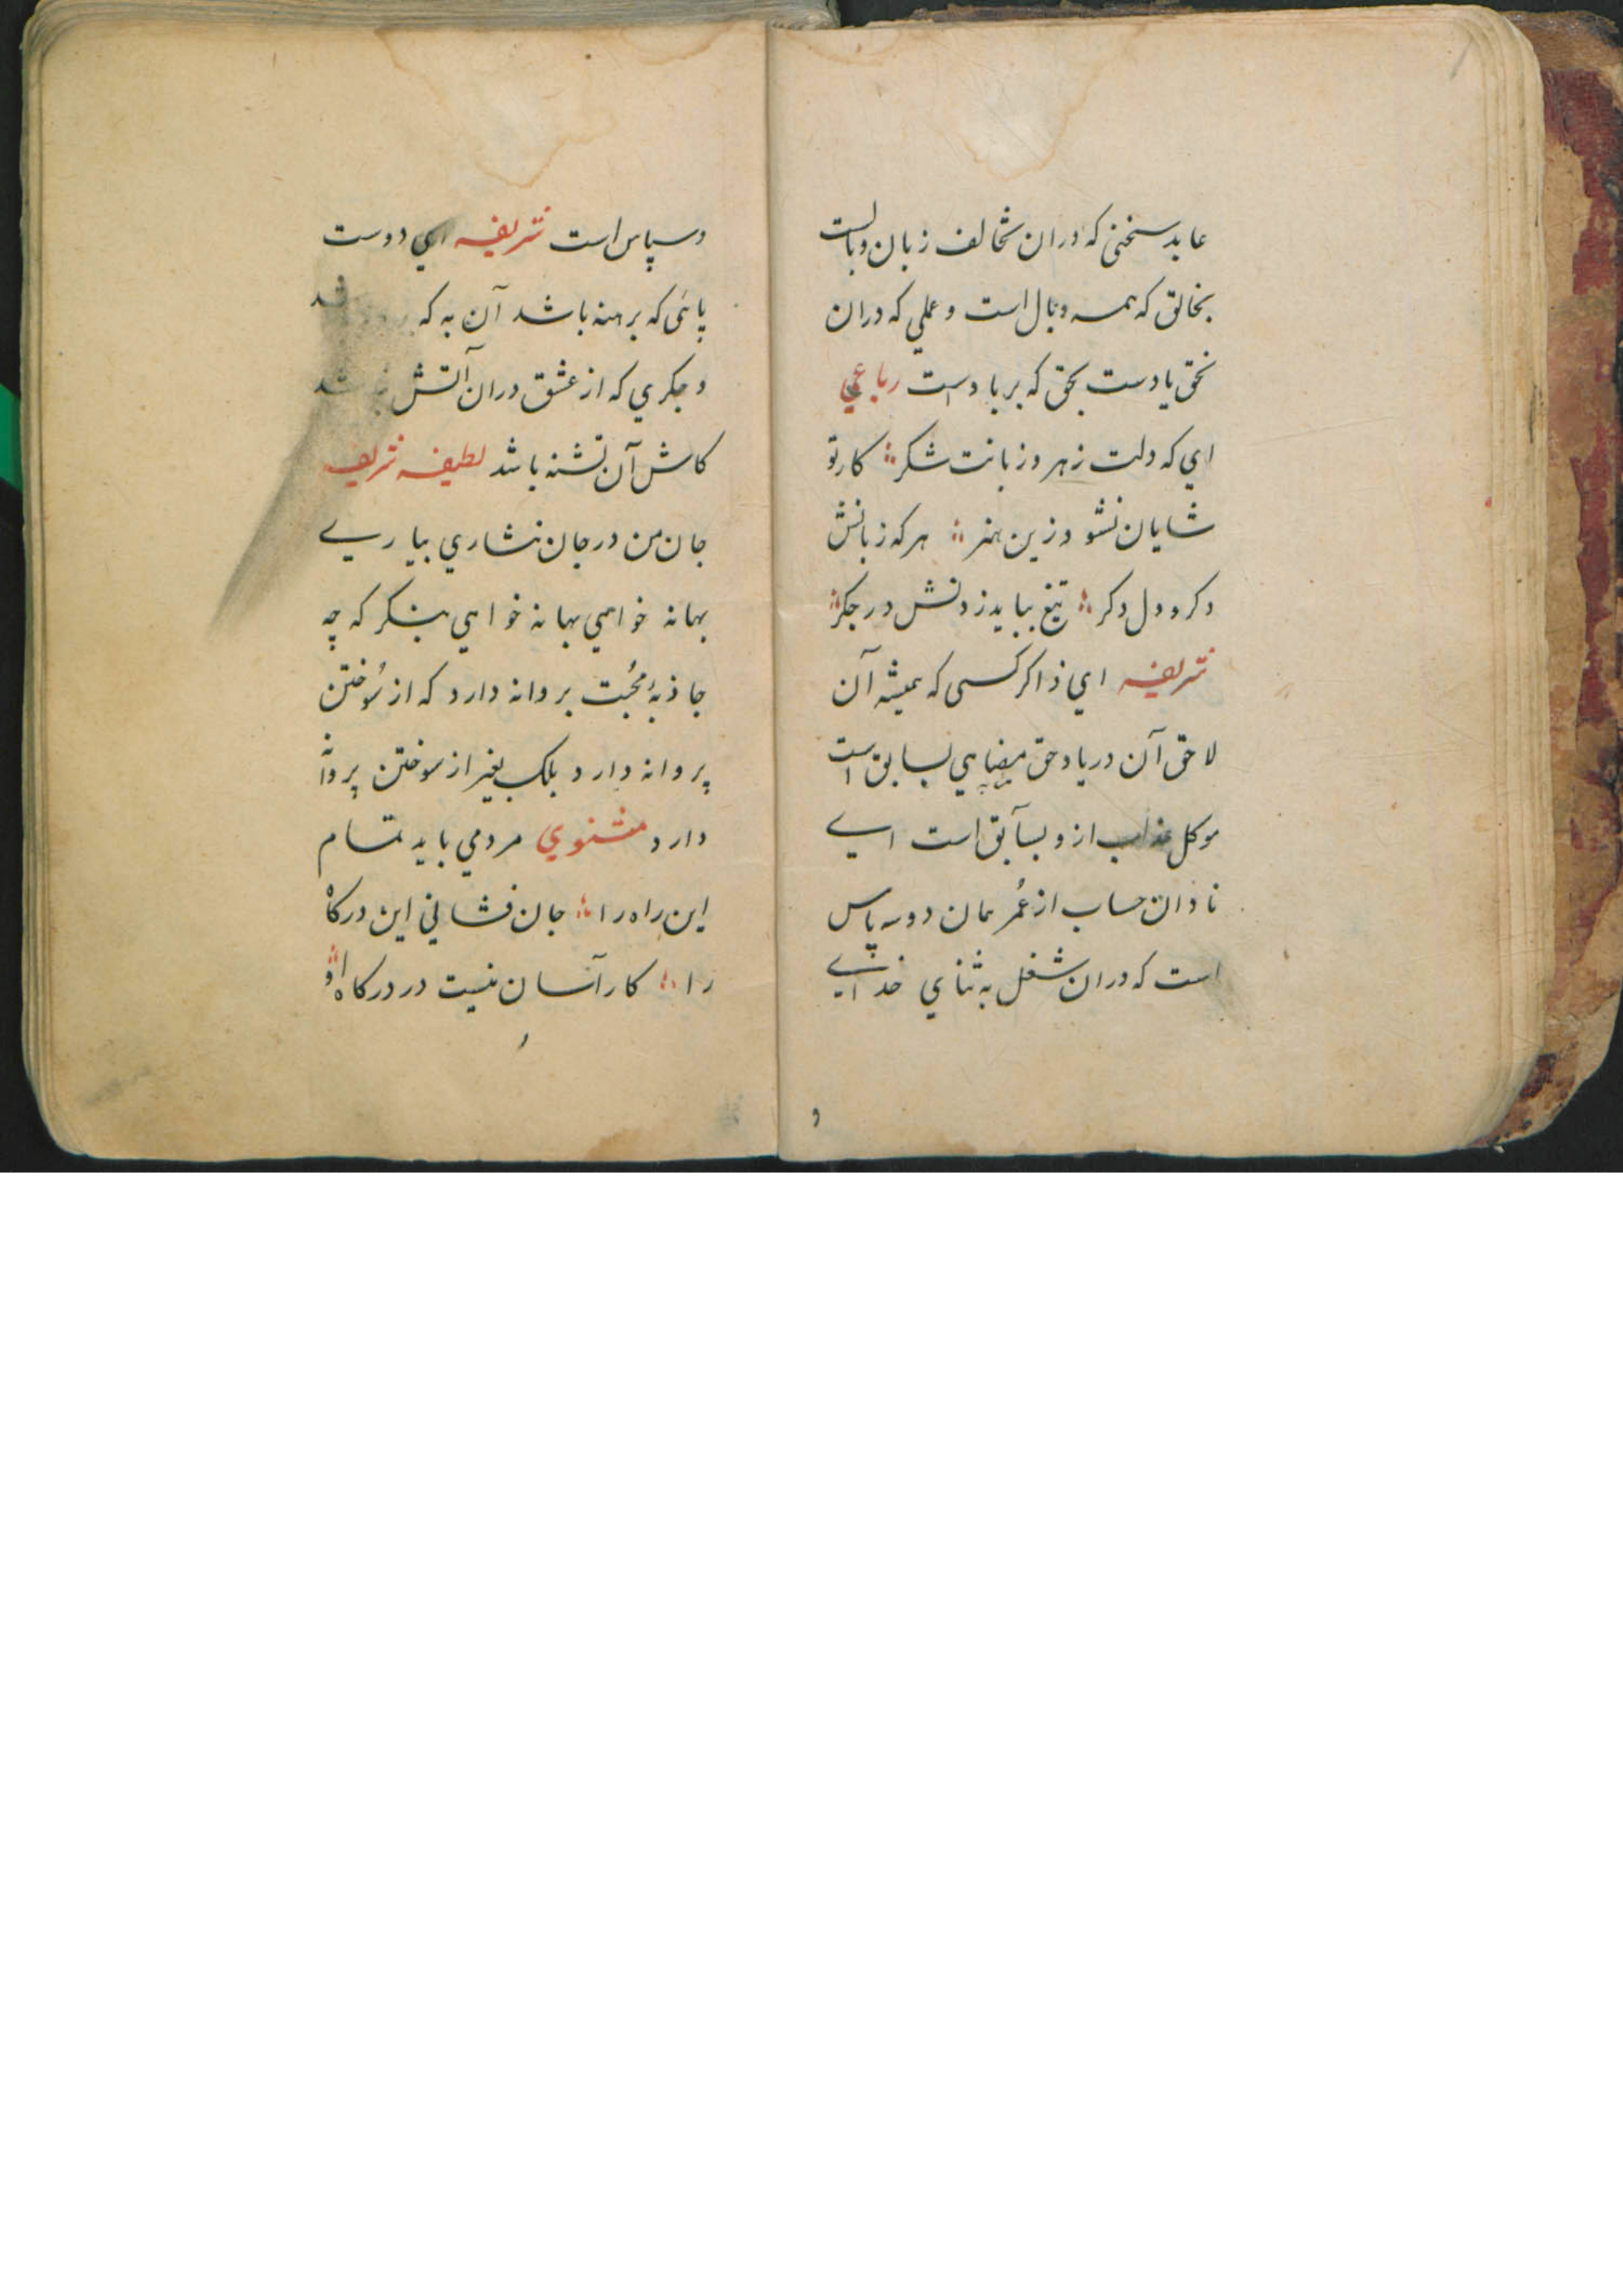 عابد سخنی که دران تخالف زبان و بالست
بخالق که همه وبال است و عملي که دران
نحق یادست بحق که بر باد است رباعي
اي که دلت زهر و زبانت شکر ؞ کار تو
شایان نشود زین هنر ؞ هر که زبانش
دکر و دل دکر ؞ تیغ بباید زدنش در جکر ؞
نثر یفه اي ذاکر کسی که همیشه آن
لاحق آن در یاد حق بسابق است
موکل عذاب ازو بسآبق است اے
نادان حساب از عُمر همان دو سه پاس
است که دران شغل به ثناي خداے
و سپاس است شریفه اي دوست
پائی که برهنه باشد آن به که
و جکري که از عشق دران آتش
کاش آن تشنه باشد لطیفه شریفه
جان من در جان نثاري بیارے
بهانه خواهي بهانه خواهي بنکر که چه
جاذبهٔ مُحبت پروانه دارد که از سُوختن
پروانه دارد بلک بغیر از سوختن پروانه
دارد مثنوي مردمي باید تمام
این راه را ؞ جان فشاني این درکاه
را ؞ کار آسان نیست در درکاه او